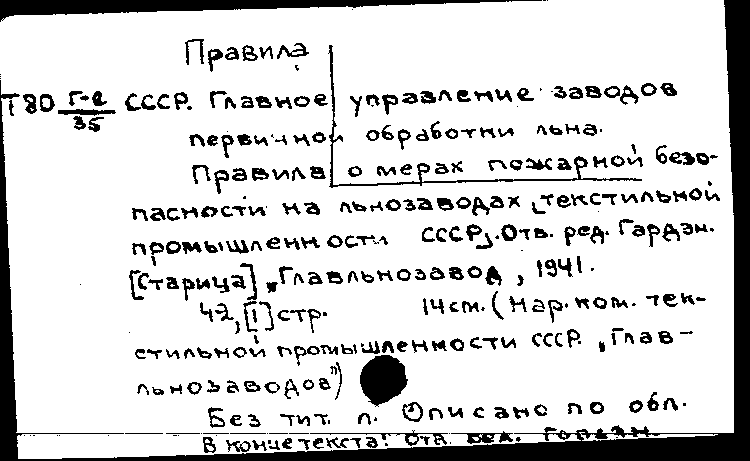 Правила
Т80 Г-2/35 СССР. Главное управление заводов
первичной обработки льна.
Правила о мерах пожарной безо-
пасности на льнозаводах [текстильной
промышленности СССР]. Отв. ред. Гардэн.
[Старица] „Главльнозавод", 1941.
42, [1] стр. 14 см. (Нар. ком. тек-
стильной промышленности СССР. „Глав-
льнозаводов")
Без тит. л. Описано по обл.
В конце текста: Отв. ред.